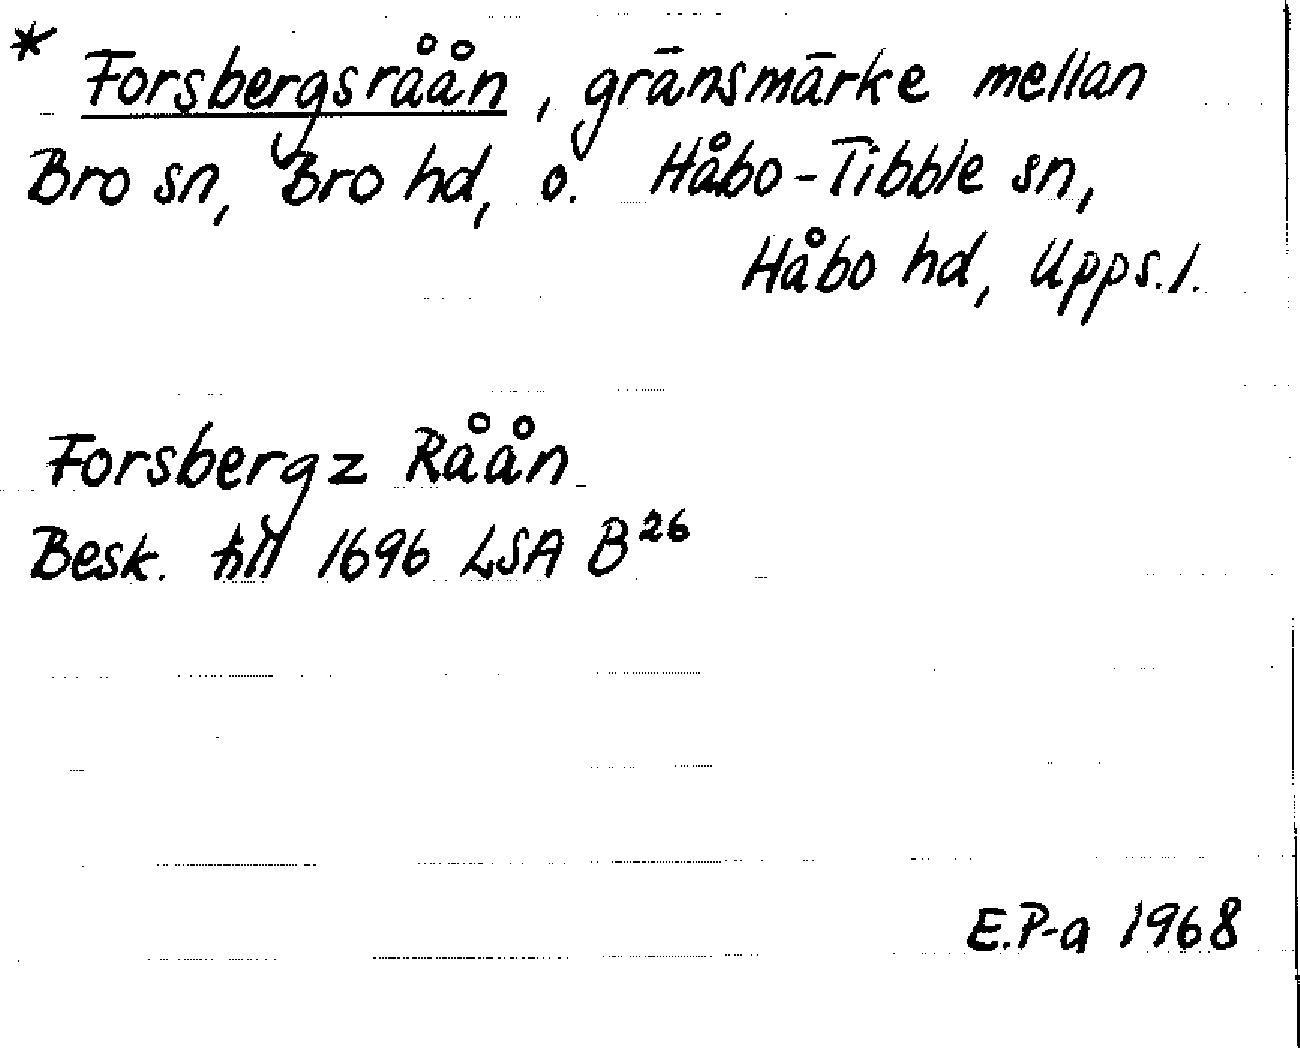 * Forsbergsråån, gränsmärke mellan
Bro sn, Bro hd, o. Håbo-Tibble sn,
Håbo hd, Upps. l.
Forsbergz Råån
Besk. till 1696 LSA B²⁶
E.P-a 1968